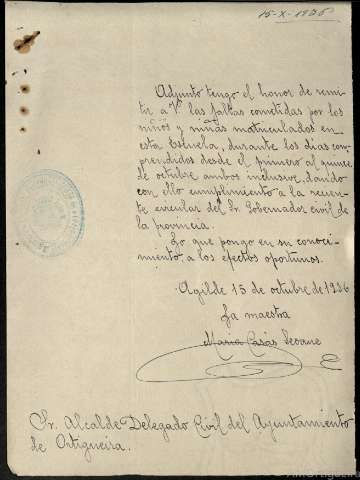 15-X-1936
Adjunto tengo el honor de remi-
tir a V. las faltas cometidas por los
niños y niñas matriculados en
esta Escuela, durante los dias com-
prendidos desde el primero al quince
de octubre ambos inclusive, dando
con ello cumplimiento a la recien-
te circular del Sr. Gobernador civil de
la provincia.
Lo que pongo en su conoci-
miento, a los efectos oportunos.
Agilde 15 de octubre de 1936
La maestra
Maria Casás Seoane
Sr. Alcalde Delegado Civil del Ayuntamiento
de Ortigueira.